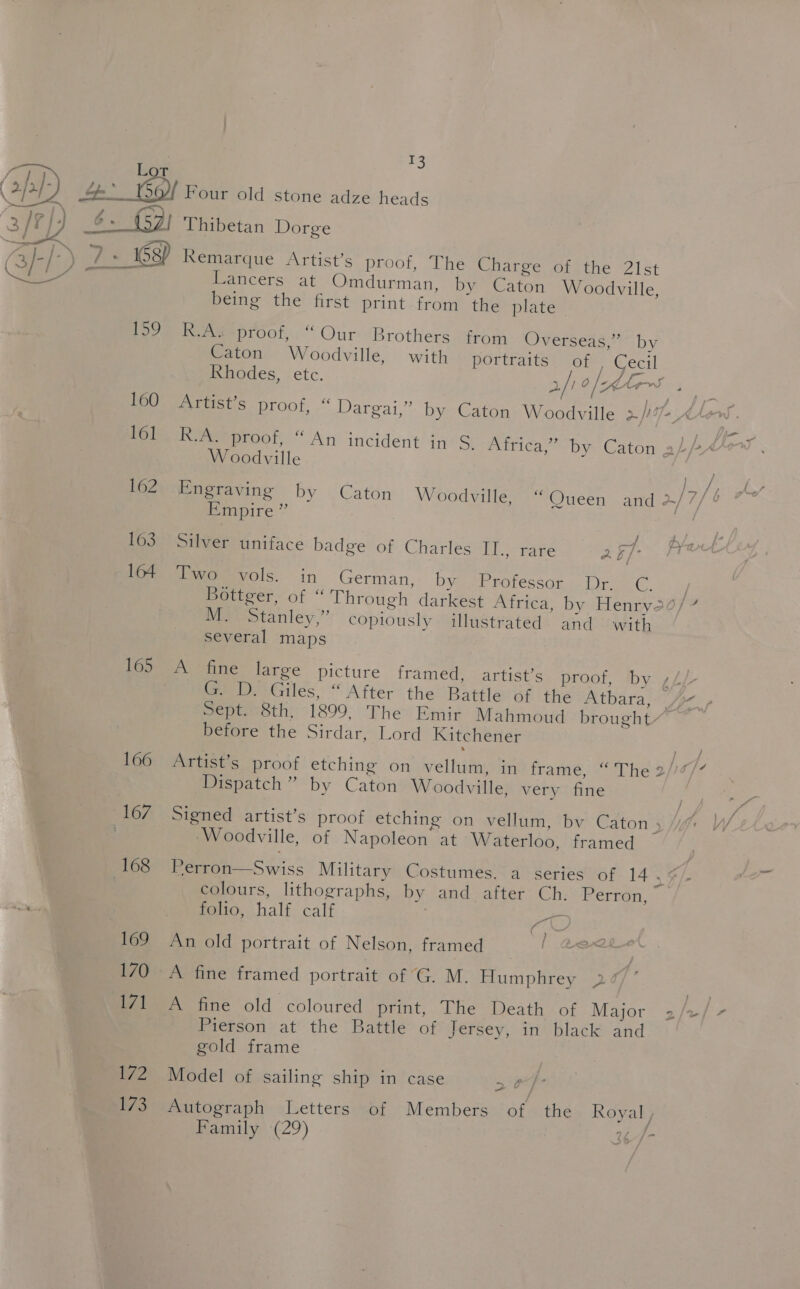 13
Lot
(2/2/-) 4. 156 Four old stone adze heads
6. 157 Thibetan Dorge
(3/-/-) 7. 158 Remarque Artist's proof, The Charge of the 21st
Lancers at Omdurman, by Caton Woodville,
being the first print from the plate
159 R.A. proof, “Our Brothers from Overseas,” by
Caton Woodville, with portraits of Cecil
Rhodes, etc.
160 Artist's proof, “Dargai,” by Caton Woodville
161 R.A. proof, “An incident in S. Africa,” by Caton
Woodville
162 Engraving by Caton Woodville, “Queen and 2/7/6
Empire”
163 Silver uniface badge of Charles II., rare
164 Two vols. in German, by Professor Dr. C.
Böttger, of “Through darkest Africa, by Henry
M. Stanley,” copiously illustrated and with
several maps
165 A fine large picture framed, artist's proof, by
G. D. Giles, “After the Battle of the Atbara,
Sept. 8th, 1899, The Emir Mahmoud brought
before the Sirdar, Lord Kitchener
166 Artist's proof etching on vellum, in frame, “The
Dispatch” by Caton Woodville, very fine
167 Signed artist's proof etching on vellum, by Caton
Woodville, of Napoleon at Waterloo, framed
168 Perron—Swiss Military Costumes, a series of 14
colours, lithographs, by and after Ch. Perron,
folio, half calf
169 An old portrait of Nelson, framed
170 A fine framed portrait of G. M. Humphrey
171 A fine old coloured print, The Death of Major
Pierson at the Battle of Jersey, in black and
gold frame
172 Model of sailing ship in case
173 Autograph Letters of Members of the Royal
Family (29)